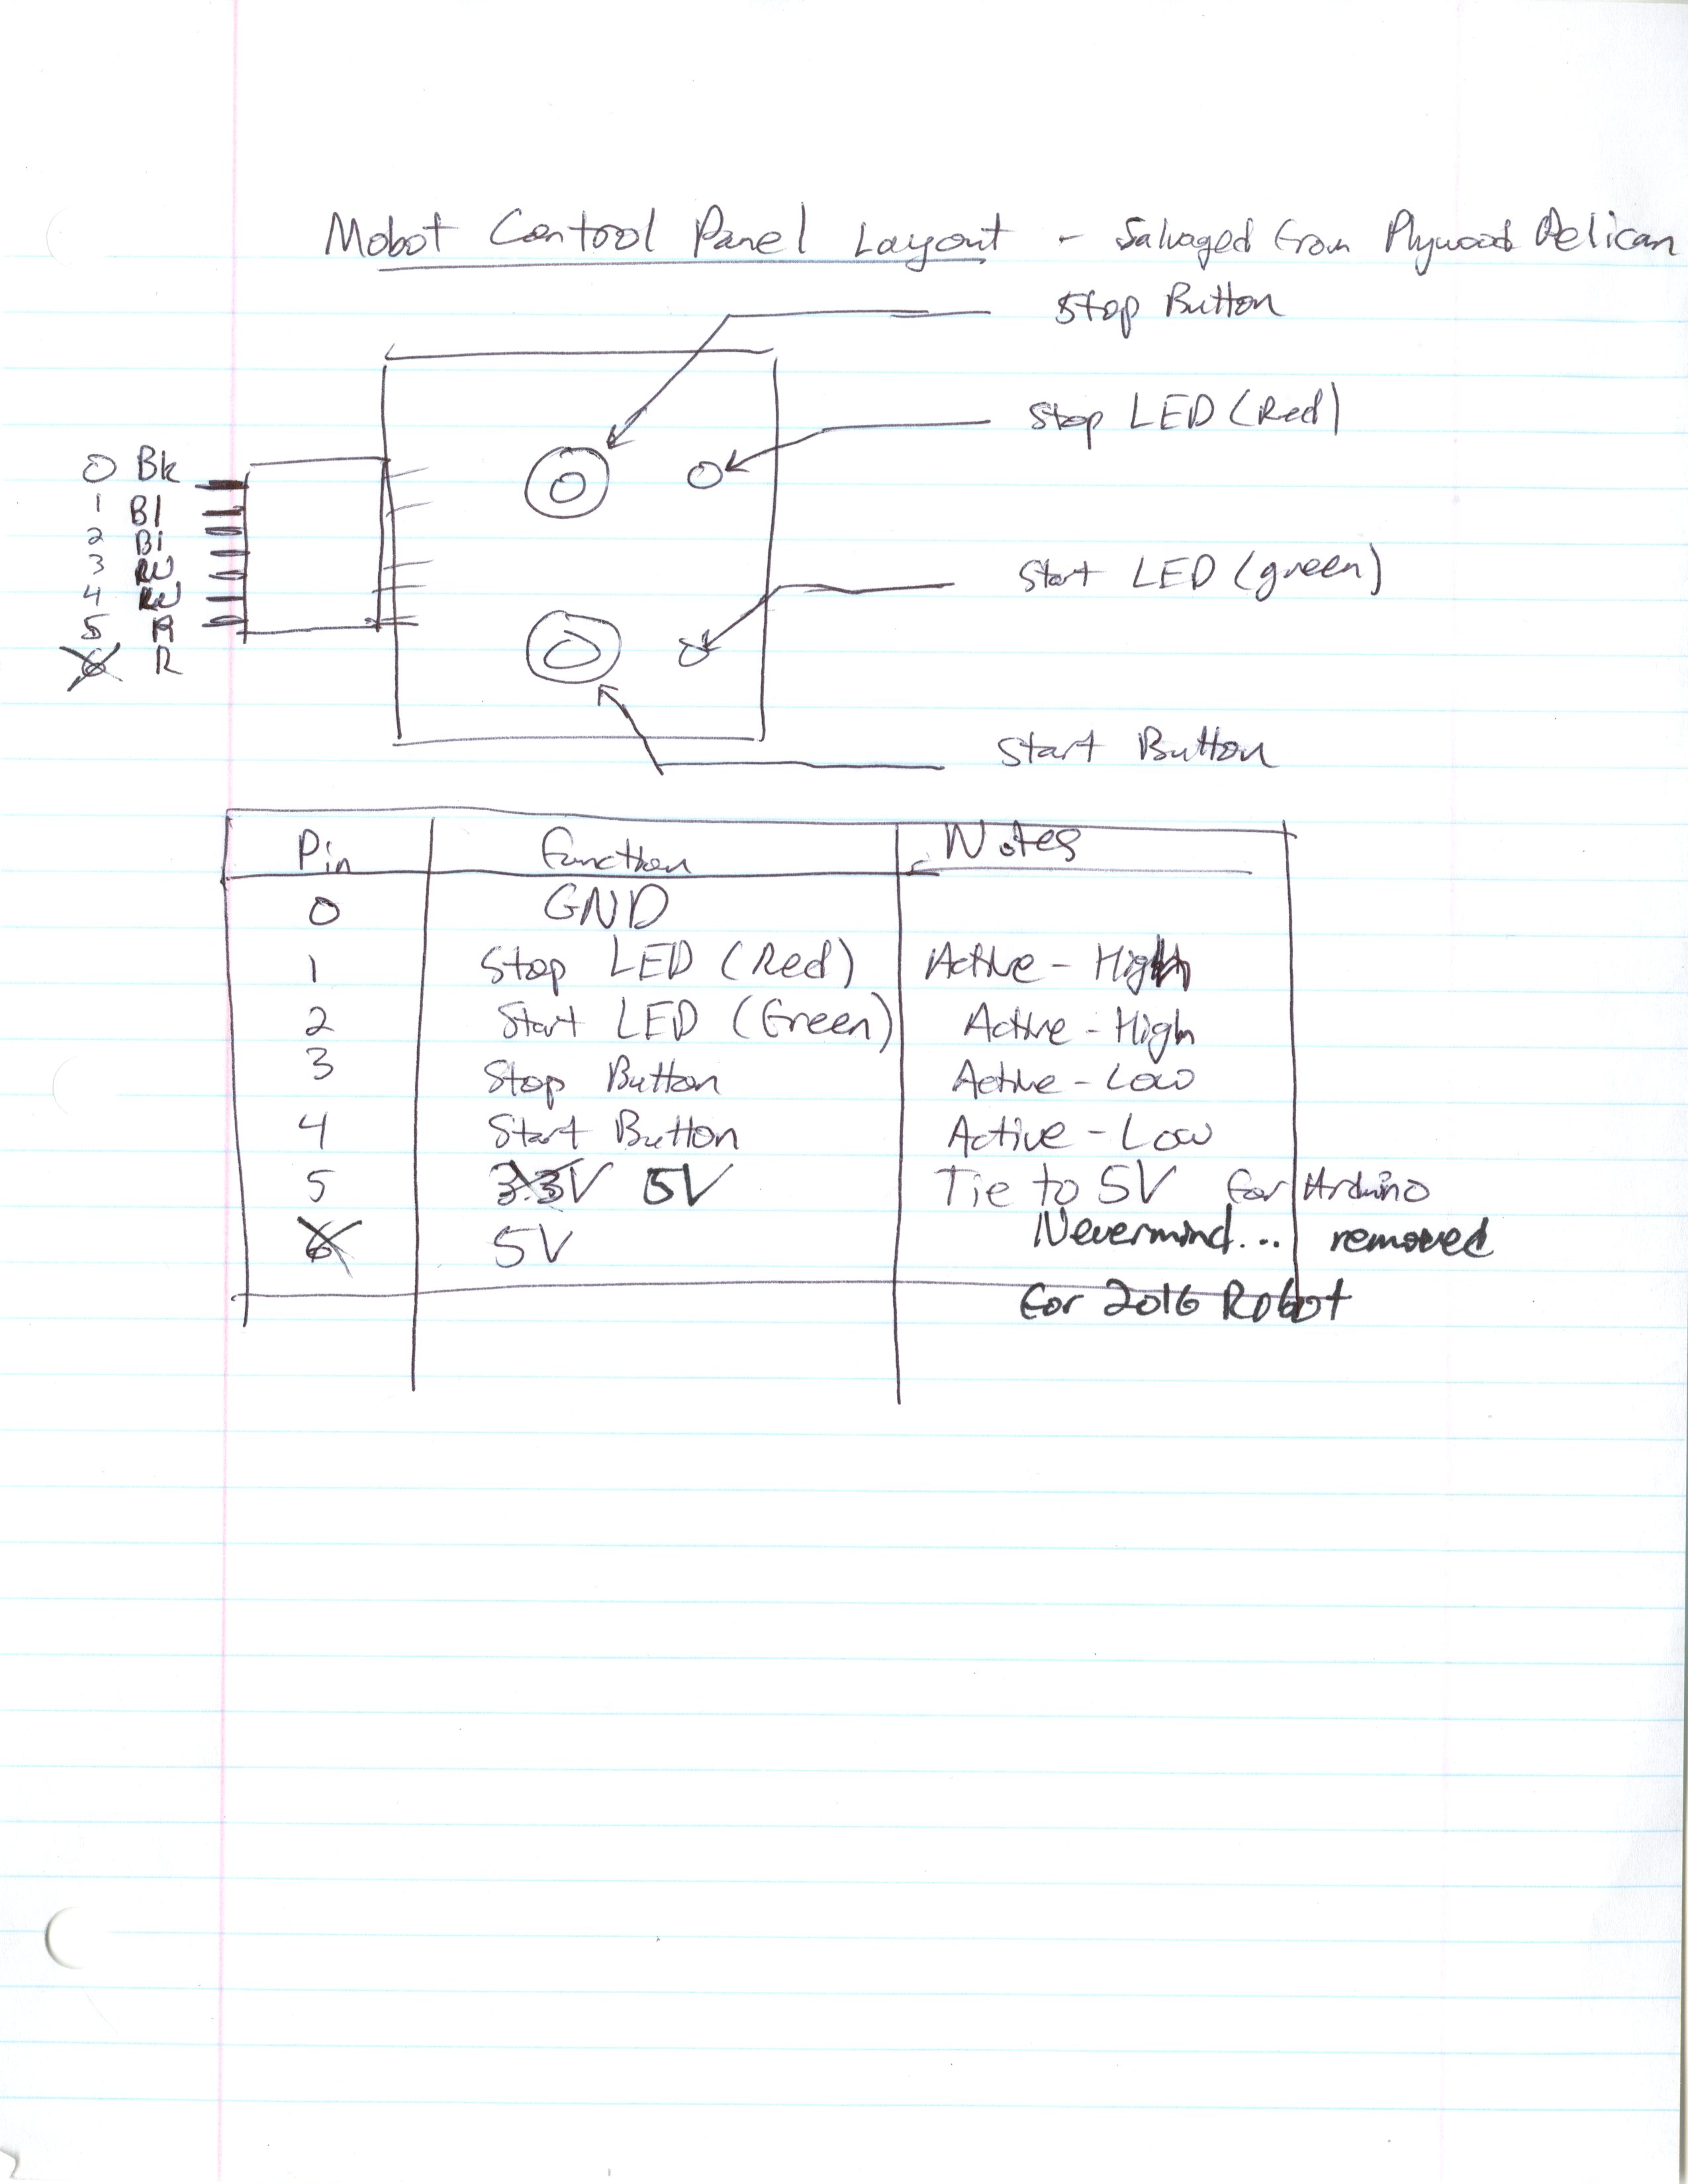 Mobot Control Panel Layout - Salvaged from Plywood Pelican
Stop Button
Stop LED (Red)
0 Bk
1 Bl
2 Bl
3 RW
4 RW
5 R
6 R
Start LED (green)
Start Button
Pin Function Notes
0 GND
1 Stop LED (Red) Active - High
2 Start LED (Green) Active - High
3 Stop Button Active - Low
4 Start Button Active - Low
5 3.3V 5V Tie to 5V for Arduino
6 5V Nevermind... removed
for 2016 Robot